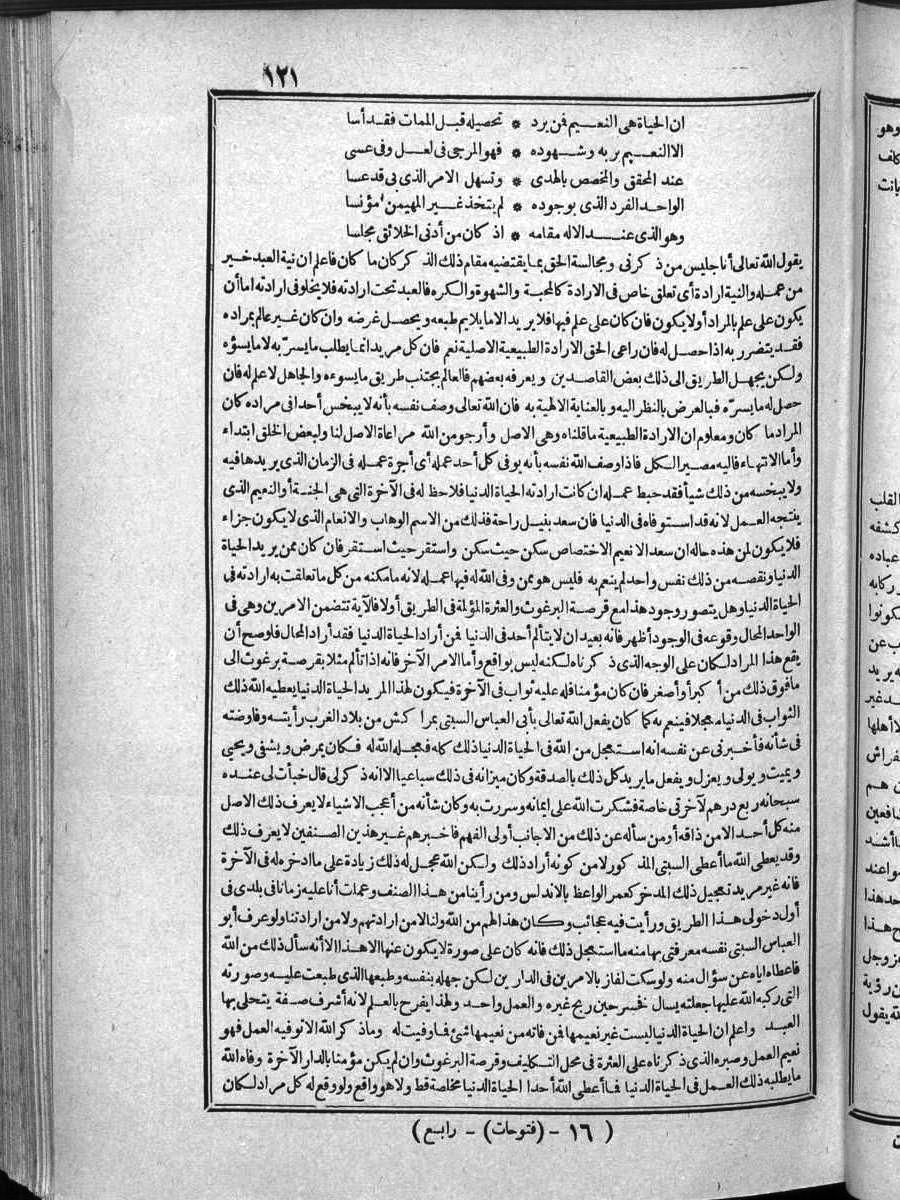 ١٢١
ان الحياة هى النعيم فمن يرد * تحصيله قبل الممات فقد أسا
الا النعيم بربه وشهوده * فهو المرجى فى لعل وفى عسى
عند المحقق والمخصص بالهدى * وتسهل الامر الذى بى قد عسا
الواحد الفرد الذى بوجوده * لم يتخذ غير المهيمن مؤنسا
وهو الذى عند الاله مقامه * اذ كان من أدنى الخلائق مجلسا
يقول الله تعالى أنا جليس من ذكرنى ومجالسة الحق بما يقتضيه مقام ذلك الذكر كان ما كان فاعلم ان نية العبد خير
من عمله والنية ارادة أى تعلق خاص فى الارادة كالمحبة والشهوة والكره فالعبد تحت ارادته فلا يخلو فى ارادته اما أن
يكون على علم بالمراد أولا يكون فان كان على علم فيها فلا يريد الا ما يلايم طبعه ويحصل غرضه وان كان غير عالم بمراده
فقد يتضرر به اذا حصل له فان راعى الحق الارادة الطبيعية الاصلية نعم فان كل مريد انما يطلب ما يسر به لا ما يسؤه
ولكن يجهل الطريق الى ذلك بعض القاصدين ويعرفه بعضهم فالعالم يجتنب طريق ما يسوءه والجاهل لا علم له فان
حصل له ما يسره فبالعرض بالنظر اليه وبالعناية الالهية به فان الله تعالى وصف نفسه بأنه لا يبخس أحدا فى مراده كان
المراد ما كان ومعلوم ان الارادة الطبيعية ما قلناه وهى الاصل وأرجو من الله مراعاة الاصل لنا ولبعض الخلق ابتداء
وأما الانتهاء فاليه مصير الكل فاذا وصف الله نفسه بأنه يوفى كل أحد عمله أى أجرة عمله فى الزمان الذى يريدها فيه
ولا يبخسه من ذلك شيأ فقد حبط عمله ان كانت ارادته الحياة الدنيا فلا حظ له فى الآخرة التى هى الجنة أو النعيم الذى
ينتجه العمل لانه قد استوفاه فى الدنيا فان سعد بنيل راحة فذلك من الاسم الوهاب والانعام الذى لا يكون جزاء
فلا يكون لمن هذه حاله ان سعد الا نعيم الاختصاص سكن حيث سكن واستقر حيث استقر فان كان ممن يريد الحياة
الدنيا ونقصه من ذلك نفس واحد لم ينعم به فليس هو ممن وفى الله له فيها عمله لانه ما مكنه من كل ما تعلقت به ارادته فى
الحياة الدنيا وهل يتصور وجود هذا مع قرصة البرغوث والعثرة المؤلمة فى الطريق أولا فالآية تتضمن الامرين وهى فى
الواحد المحال وقوعه فى الوجود أظهر فانه بعيد ان لا يتألم أحد فى الدنيا فمن أراد الحياة الدنيا فقد أراد المحال فلو صح أن
يقع هذا المراد لكان على الوجه الذى ذكرناه لكنه ليس بواقع وأما الامر الآخر فانه اذا تألم مثلا بقرصة برغوث الى
ما فوق ذلك من أكبر أو أصغر فان كان مؤمنا فله عليه ثواب فى الآخرة فيكون لهذا المريد الحياة الدنيا يعطيه الله ذلك
الثواب فى الدنيا معجلا فينعم به كما كان يفعل الله تعالى بأبى العباس السبتى بمراكش من بلاد الغرب رأيته وفاوضته
فى شأنه فأخبرنى عن نفسه انه استعجل من الله فى الحياة الدنيا ذلك كله فعجله الله له فكان يمرض ويشفى ويحيى
ويميت ويولى ويعزل ويفعل ما يريد كل ذلك بالصدقة وكان ميزانه فى ذلك سباعيا الا انه ذكر لى قال خبأت لى عنده
سبحانه ربع درهم لآخرتى خاصة فشكرت الله على ايمانه وسررت به وكان شأنه من أعجب الاشياء لا يعرف ذلك الاصل
منه كل أحد الا من ذاقه أو من سأله عن ذلك من الاجانب أولى الفهم فاخبرهم غير هذين الصنفين لا يعرف ذلك
وقد يعطى الله ما أعطى السبتى المذكور لا من كونه أراد ذلك ولكن الله عجل له ذلك زيادة على ما ادخره له فى الآخرة
فانه غير مريد تعجيل ذلك المدخر كعمر الواعظ بالاندلس ومن رأينا من هذا الصنف وعملت أنا عليه زمانا فى بلدى فى
أول دخولى هذا الطريق ورأيت فيه عجائب وكان هذا لهم من الله ولنا لا من ارادتهم ولا من ارادتنا ولو عرف أبو
العباس السبتى نفسه معرفتى بها منه ما استعجل ذلك فانه كان على صورة لا يكون عنها الا هذا الا أنه سأل ذلك من الله
فاعطاه اياه عن سؤال منه ولو سكت لفاز بالامرين فى الدارين لكن جهله بنفسه وطبعها الذى طبعت عليه وصورته
التى ركبه الله عليها جعلته يسأل فخسر حين ربح غيره والعمل واحد ولهذا يفرح بالعلم لانه أشرف صفة يتحلى بها
العبد واعلم ان الحياة الدنيا ليست غير نعيمها فمن فاته من نعيمها شئ فما وفيت له وما ذكر الله الا توفيه العمل فهو
نعيم العمل وصبره الذى ذكرناه على العثرة فى محل التكليف وقرصة البرغوث وان لم يكن مؤمنا بالدار الآخرة وفاه الله
ما يطلبه ذلك العمل فى الحياة الدنيا فما أعطى الله أحدا الحياة الدنيا مخلصة قط ولا هو واقع ولو وقع له كل مراد لكان
( ١٦ - (فتوحات) - رابع )
وهو
كلف
بانت
القلب
كشفه
عباده
ركابه
كونوا
ب عن
يريد
د غير
لا أهلها
فراش
ن هم
شافعين
ا أشد
واعند
حد هذا
ح هذا
عز وجل
ن رؤية
لله يقول